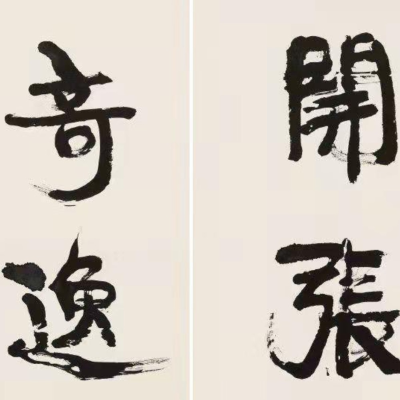 開張
奇逸